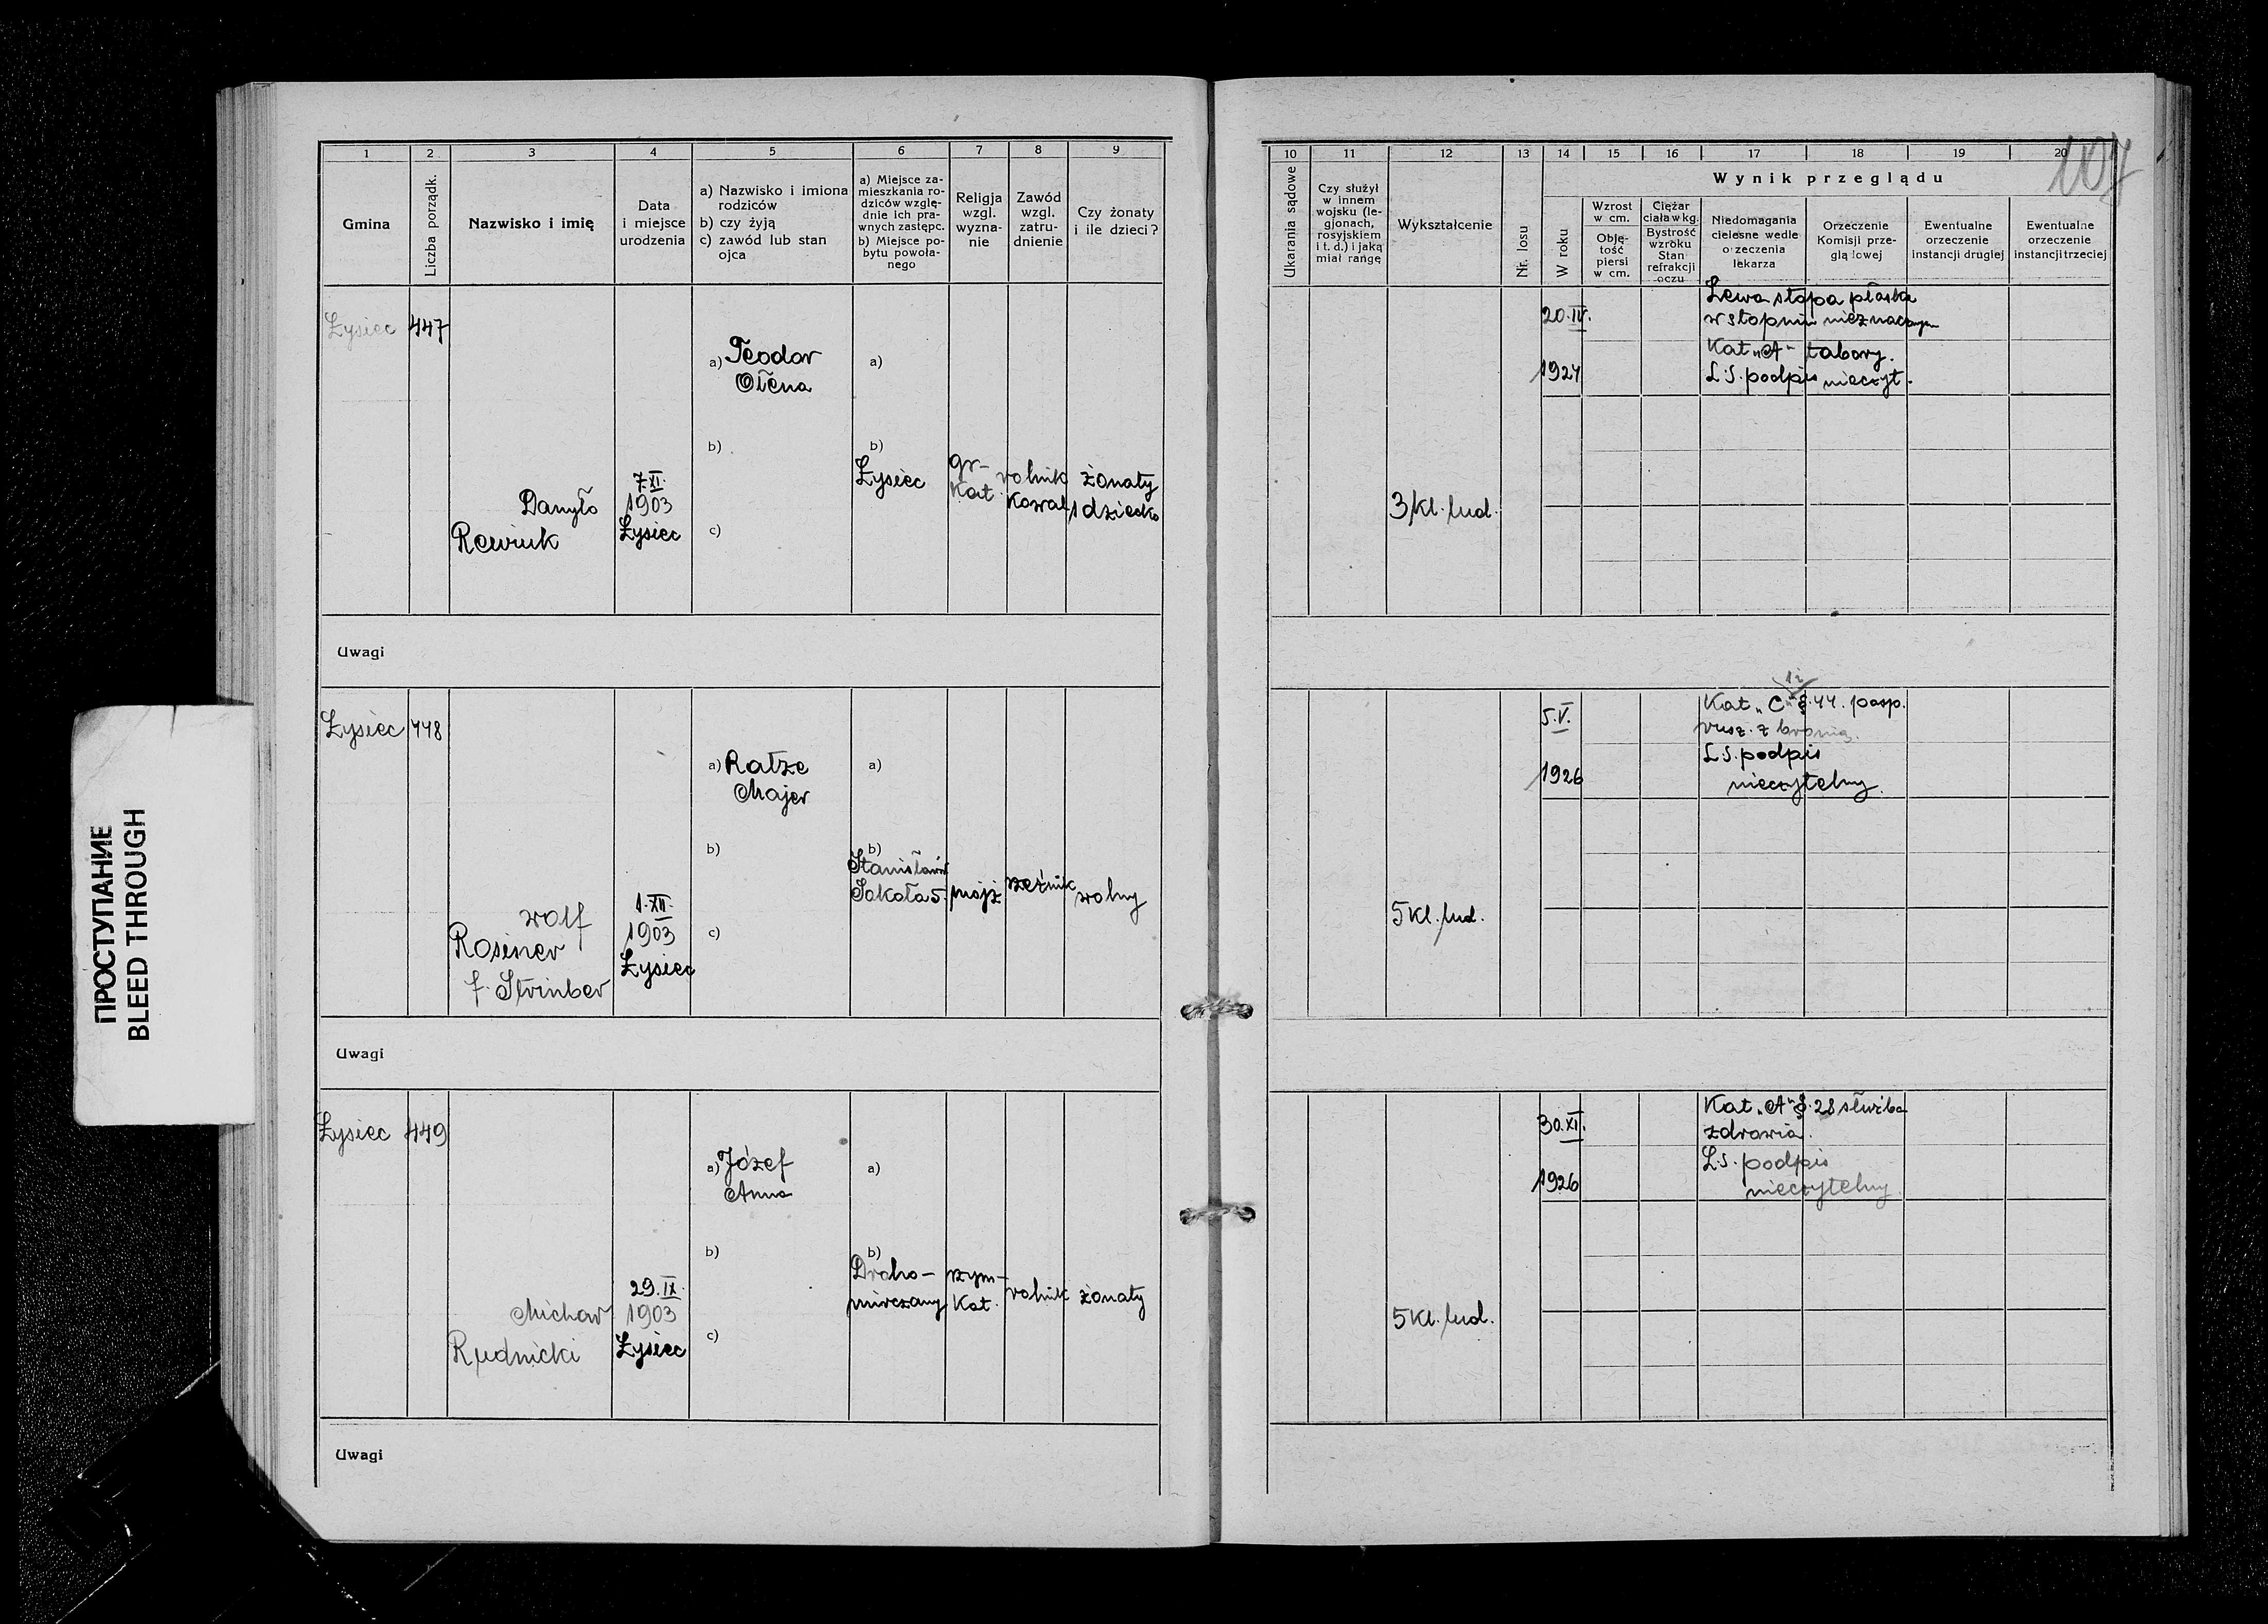 107
1 2 3 4 5 6 7 8 9
Gmina
Liczba porządk.
Nazwisko i imię
Data
i miejsce
urodzenia
a) Nazwisko i imiona
rodziców
b) czy żyją
c) zawód lub stan
ojca
a) Miejsce za-
mieszkania ro-
dziców wzglę-
dnie ich pra-
wnych zastępc.
b) Miejsce po-
bytu powoła-
nego
Religja
wzgl.
wyzna-
nie
Zawód
wzgl.
zatru-
dnienie
Czy żonaty
i ile dzieci?
10 11 12 13 14 15 16 17 18 19 20
Ukarania sądowe
Czy służył
w innem
wojsku (le-
gjonach,
rosyjskiem
i t. d.) i jaką
miał rangę
Wykształcenie
Nr. losu
Wynik przeglądu
W roku
Wzrost
w cm.
Obję-
tość
piersi
w cm.
Ciężar
ciała w kg.
Bystrość
wzroku
Stan
refrakcji
oczu
Niedomagania
cielesne wedle
orzeczenia
lekarza
Orzeczenie
Komisji prze-
glądowej
Ewentualne
orzeczenie
instancji drugiej
Ewentualne
orzeczenie
instancji trzeciej
Łysiec 447
Danyło
Rewiuk
7.XI.
1903
Łysiec
a) Teodor
Ołena
b)
c)
a)
b)
Łysiec
gr-
kat.
rolnik
kowal
żonaty
1 dziecko
3 kl. lud.
20.IV.
1924
Lewa stopa płaska
w stopniu nieznacznym
Kat „A" tabory.
L.S. podpis nieczyt.
Uwagi
Łysiec 448
Wolf
Rosiner
f. Strinber
1.XII.
1903
Łysiec
a) Ratze
Majer
b)
c)
a)
b)
Stanisławów
Sokoła 5.
mojż
rzeźnik
wolny
5 kl. lud.
5.V.
1926
12
Kat „C" § 44. posp.
rusz. z bronią.
L.S. podpis
nieczytelny.
Uwagi
Łysiec 449
Michał
Rudnicki
29.IX.
1903
Łysiec
a) Józef
Anna
b)
c)
a)
b)
Droho-
mirczany
rzym-
kat.
rolnik
żonaty
5 kl. lud.
30.XI.
1926
Kat „A" § 28 służba
zdrowia.
L.S. podpis
nieczytelny
Uwagi
ПРОСТУПАНИЕ
BLEED THROUGH